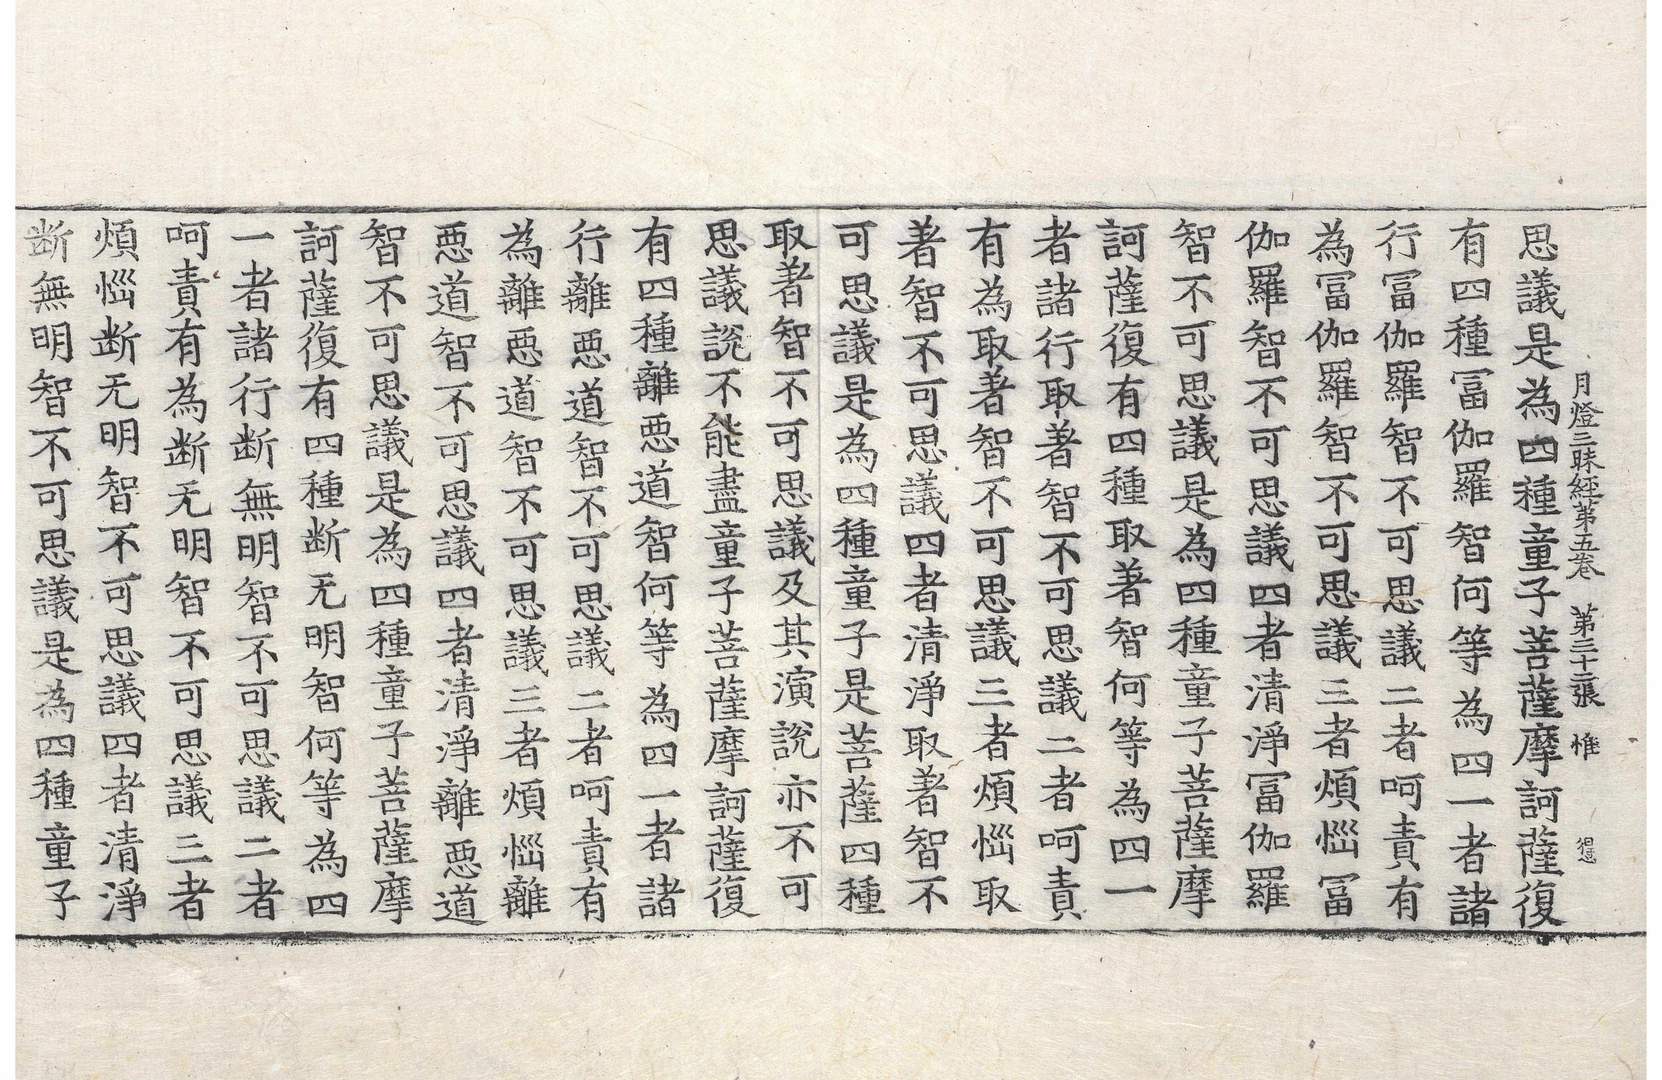 月燈三昧經第五卷 第三十二張 惟
思議是為四種童子菩薩摩訶薩復
有四種冨伽羅智何等為四一者諸
行冨伽羅智不可思議二者呵責有
為冨伽羅智不可思議三者煩惱冨
伽羅智不可思議四者清淨冨伽羅
智不可思議是為四種童子菩薩摩
訶薩復有四種取著智何等為四一
者諸行取著智不可思議二者呵責
有為取著智不可思議三者煩惱取
著智不可思議四者清淨取著智不
可思議是為四種童子是菩薩四種
取著智不可思議及其演說亦不可
思議說不能盡童子菩薩摩訶薩復
有四種離惡道智何等為四一者諸
行離惡道智不可思議二者呵責有
為離惡道智不可思議三者煩惱離
惡道智不可思議四者清淨離惡道
智不可思議是為四種童子菩薩摩
訶薩復有四種断无明智何等為四
一者諸行断無明智不可思議二者
呵責有為断无明智不可思議三者
煩惱断无明智不可思議四者清淨
断無明智不可思議是為四種童子